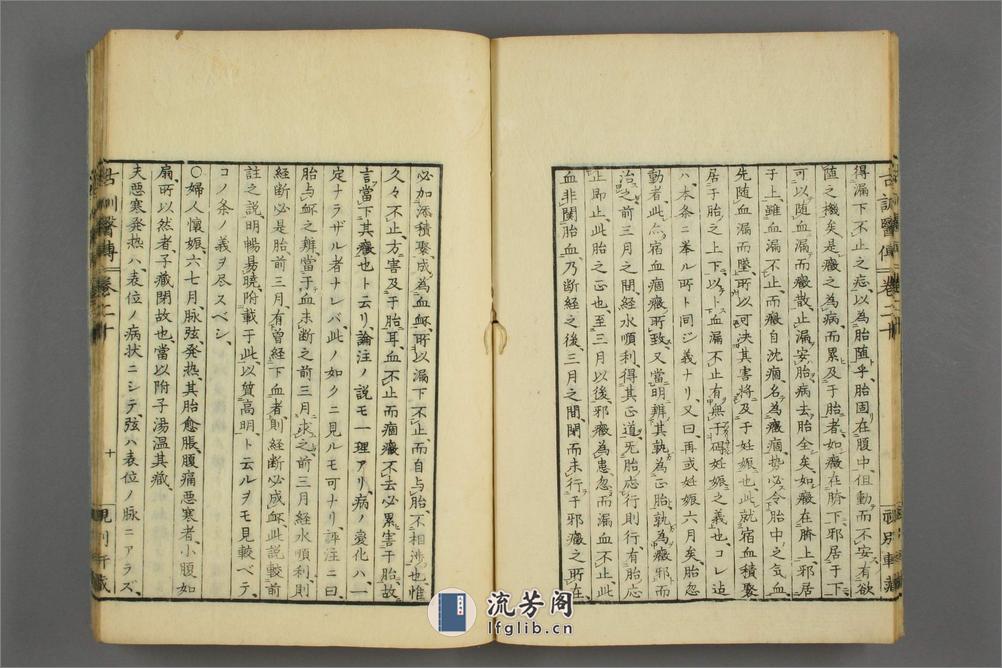 得漏下不止之症、以為胎墮乎、胎固在腹中但動而不安有欲
墮之機矣是癥之為病而累及于胎者如癥在臍下邪居于下
可以随血漏而癥散止漏安胎病去胎全矣如癥在臍上邪居
于上雖血漏不止而癥自沈痼名為癥痼勢必令胎中之気血
先随血漏而墜所以可決其害将及于妊娠也此就宿血積聚
居于胎之上下以卜血漏不止有無干碍妊娠之義也コレ迠
ハ本条ニ挙ル所ト同ジ義ナリ又曰再或妊娠六月矣胎忽
動者此亦宿血痼癥所致又當明辨其孰為正胎孰為癥邪而
治之前三月之間経水順利得其正道無胎応行則行有胎応
止即止此胎之正也至三月以後邪癥為患忽而漏血不止此
血非関胎血乃断経之後三月之間閉而未行于邪癥之所在
必加添積聚成為血衃所以漏下不止而自与胎不相渉也惟
久々不止方害及于胎耳血不止而痼癥不去必累害于胎故
言當下其癥也ト云リ論注ノ説モ一理アリ病ノ変化ハ一
定ナラザル者ナレバ此ノ如クニ見ルモ可ナリ評注ニ曰
胎与衃之辨當于血未断之前三月求之前三月経水順利則
経断必是胎前三月有曽経下血者則経断必成衃此説較前
註之説明暢易暁附載于此以質高明ト云ルヲモ見較ベテ
コノ条ノ義ヲ尽スベシ
〇婦人懐娠六七月脉弦発熱其胎愈脹腹痛悪寒者小腹如
扇所以然者子蔵開故也當以附子湯温其蔵
夫悪寒発熱ハ表位ノ病状ニシテ弦ハ表位ノ脉ニアラズ
古訓醫傳
卷之十
十
流芳阁
lfglib.cn